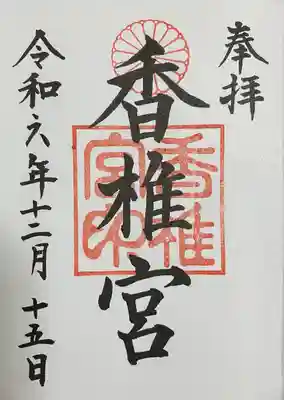 奉拝
香椎宮
香椎宮印
令和六年十二月十五日